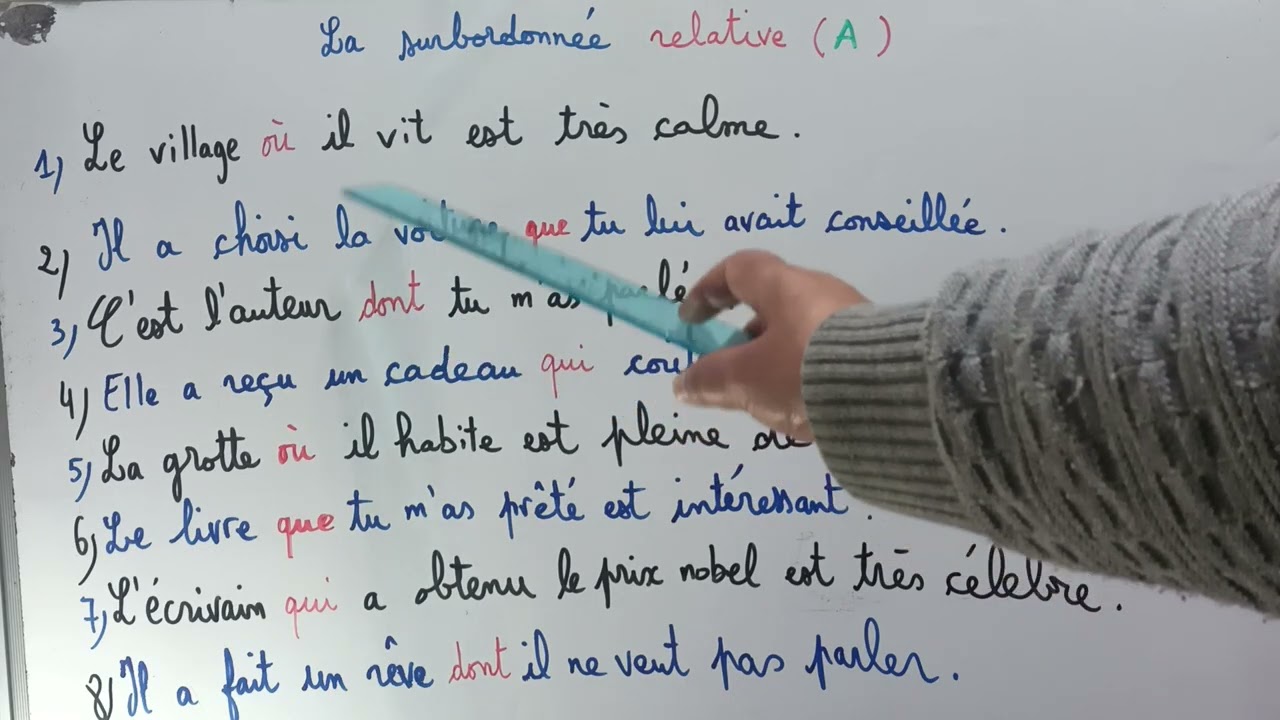 La surbordonnée relative (A)
1) Le village où il vit est très calme.
2) Il a choisi la voiture que tu lui avait conseillée.
3) C'est l'auteur dont tu m'as parlé
4) Elle a reçu un cadeau qui
5) La grotte où il habite est pleine
6) Le livre que tu m'as prêté est intéressant.
7) L'écrivain qui a obtenu le prix nobel est très célèbre.
8) Il a fait un rêve dont il ne veut pas parler.